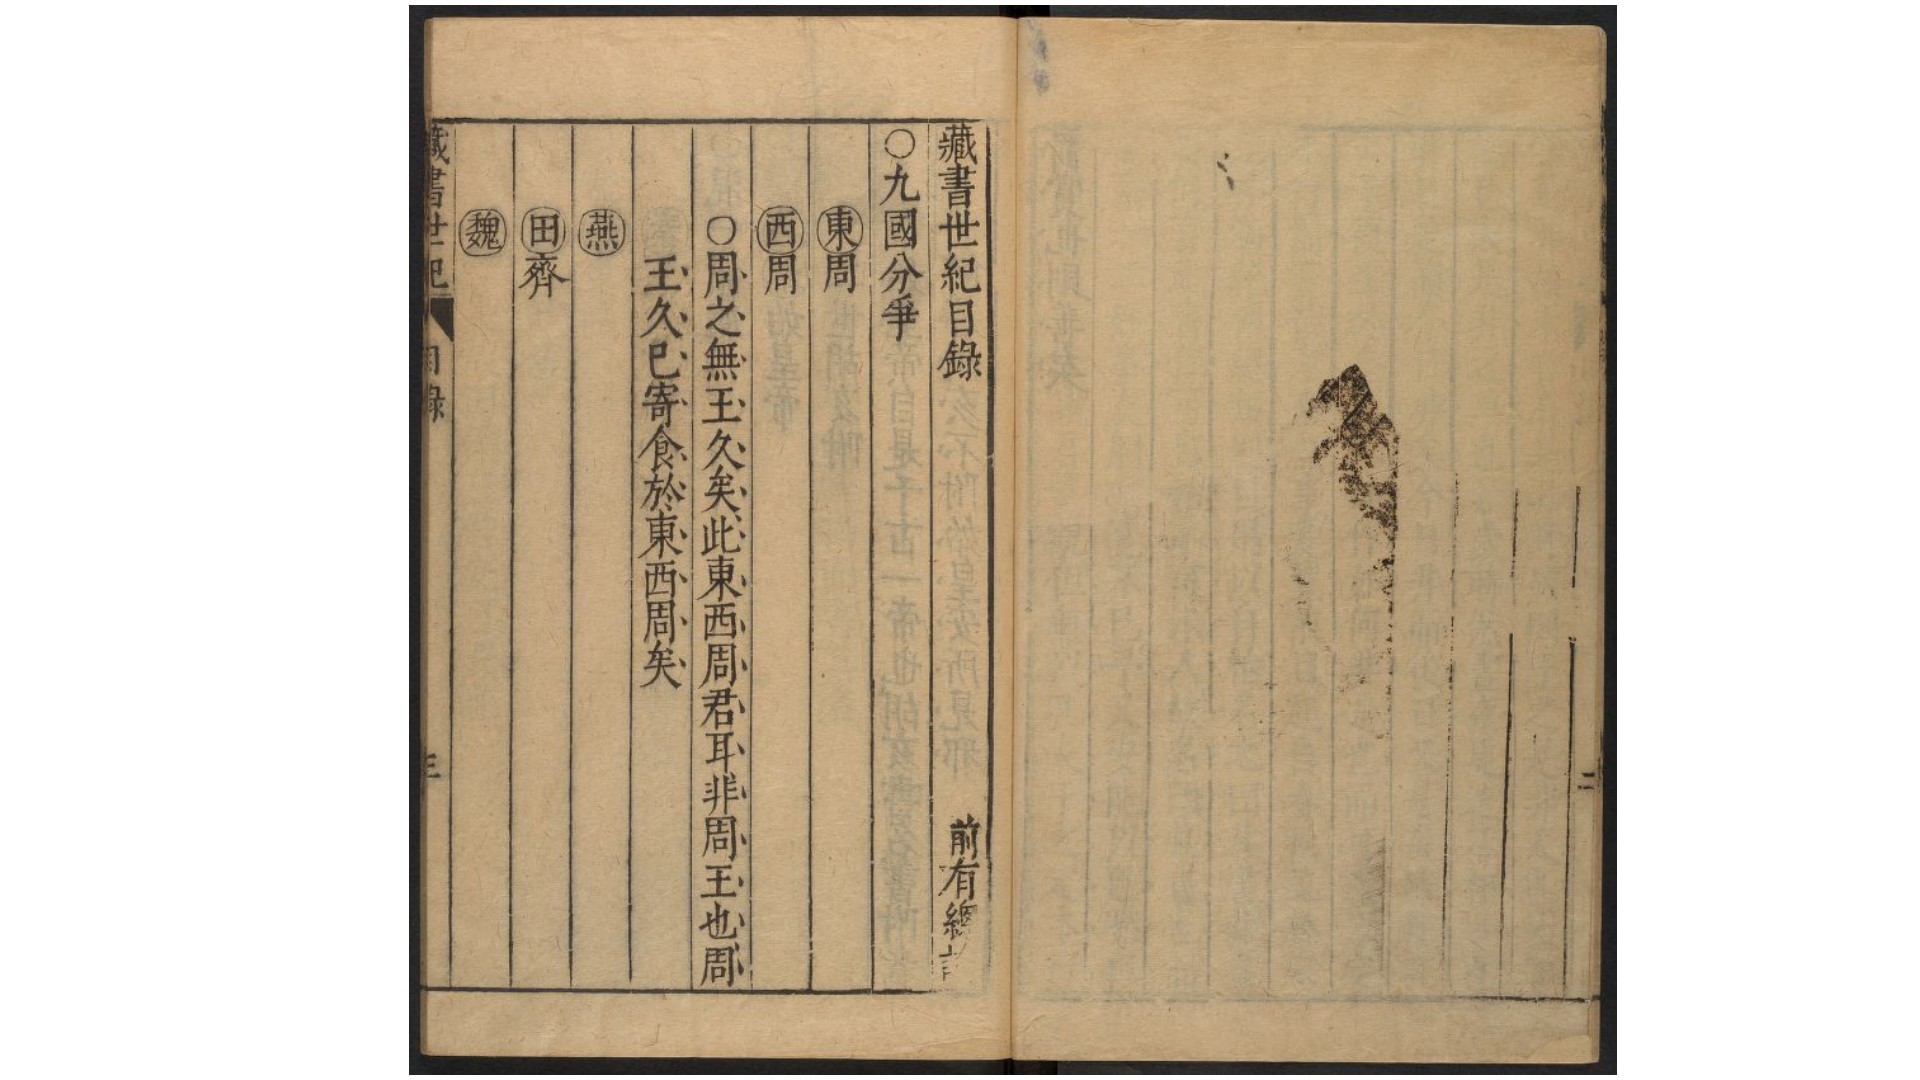 二
藏書世紀目錄
前有總
○九國分爭
東周
西周
○周之無王久矣此東西周君耳非周王也周
王久已寄食於東西周矣
燕
田齊
魏
藏書世紀 目錄 三